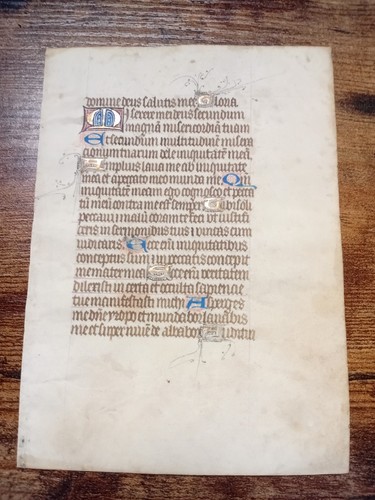 domine deus salutis mee Gloria
Miserere mei deus secundum
magnam misericordiam tuam
Et secundum multitudinem misera
cionum tuarum dele iniquitatem meam
Amplius laua me ab iniquitate
mea et a peccato meo munda me Qm
iniquitatem meam ego cognosco et pecca
tum meum contra me est semper Tibi soli
peccaui et malum coram te feci ut iustifi
ceris in sermonibus tuis et uincas cum
iudicaris Ecce enim in iniquitatibus
conceptus sum et in peccatis concepit
me mater mea Ecce enim ueritatem
dilexisti incerta et occulta sapiencie
tue manifestasti michi Asperges
me domine ysopo et mundabor lauabis
me et super niuem dealbabor Auditui